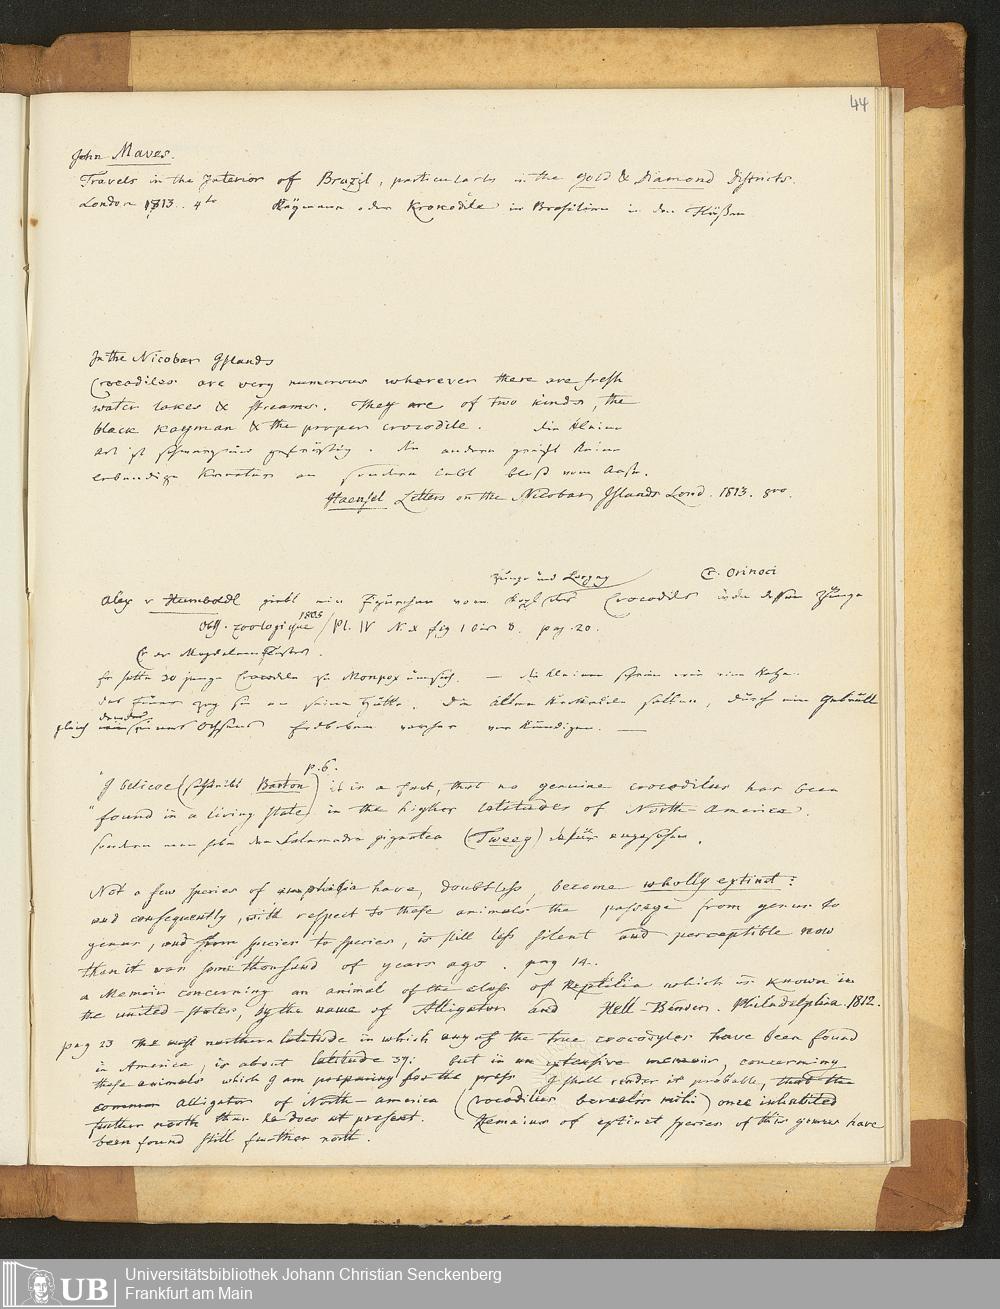 44
John Mawes.
Travels in the Interior of Brazil, particularly in the gold & Diamond Districts.
London 1813. 4to Kaÿmann oder Krokodile in Brasilien in den Flüßen
In the Nicobar Islands
Crocodiles are very numerous wherever there are fresh
water lakes & streams. They are of two kinds, the
black kayman & the proper crocodile. die kleine
Art ist gefräßig. die andere greift keine
lebendige Kreatur an sondern lebt bloß vom Aase.
Haensel Letters on the Nicobar Islands Lond. 1813. 8vo.
Zunge und Cr. Orinoci
Alex v Humboldt giebt eine vom Kopf des Crocodils
Obs. zoologique 1805 / Pl. IV N. X fig 1 bis 8. pag. 20.
er hatte 30 junge Crocodile zu Monpox — die kleinen
das an seine Die alten durch ein Gebrüll
gleich Ochsens Erdbeben vorher verkündigen. —
p. 6.
"I believe (schreibt Barton) it is a fact, that no genuine crocodilus has been
"found in a living state in the higher latitudes of North-America.
sondern man habe den Salamandra gigantea (Tweeg) dafür angesehen.
Not a few species of amphibia have, doubtless, become wholly extinct:
and consequently, with respect to those animals the passage from genus to
genus, and from species to species, is still less silent and perceptible now
than it was some thousand of years ago. pag 14.
a Memoir concerning an animal of the class of Reptilia which is known in
the united-states, by the name of Alligator and Hell-Bender. Philadelphia 1812.
pag 23 The most northern latitude in which any of the true crocodyles have been found
in America, is about latitude 37; but in an extensive memoir, concerning
these animals which I am preparing for the press I shall render it probable, that the
common alligator of North-america (Crocodilus mihi) once inhabited
further north than he does at present. Remains of extinct species of this genus have
been found still further north.
Universitätsbibliothek Johann Christian Senckenberg
Frankfurt am Main
UB